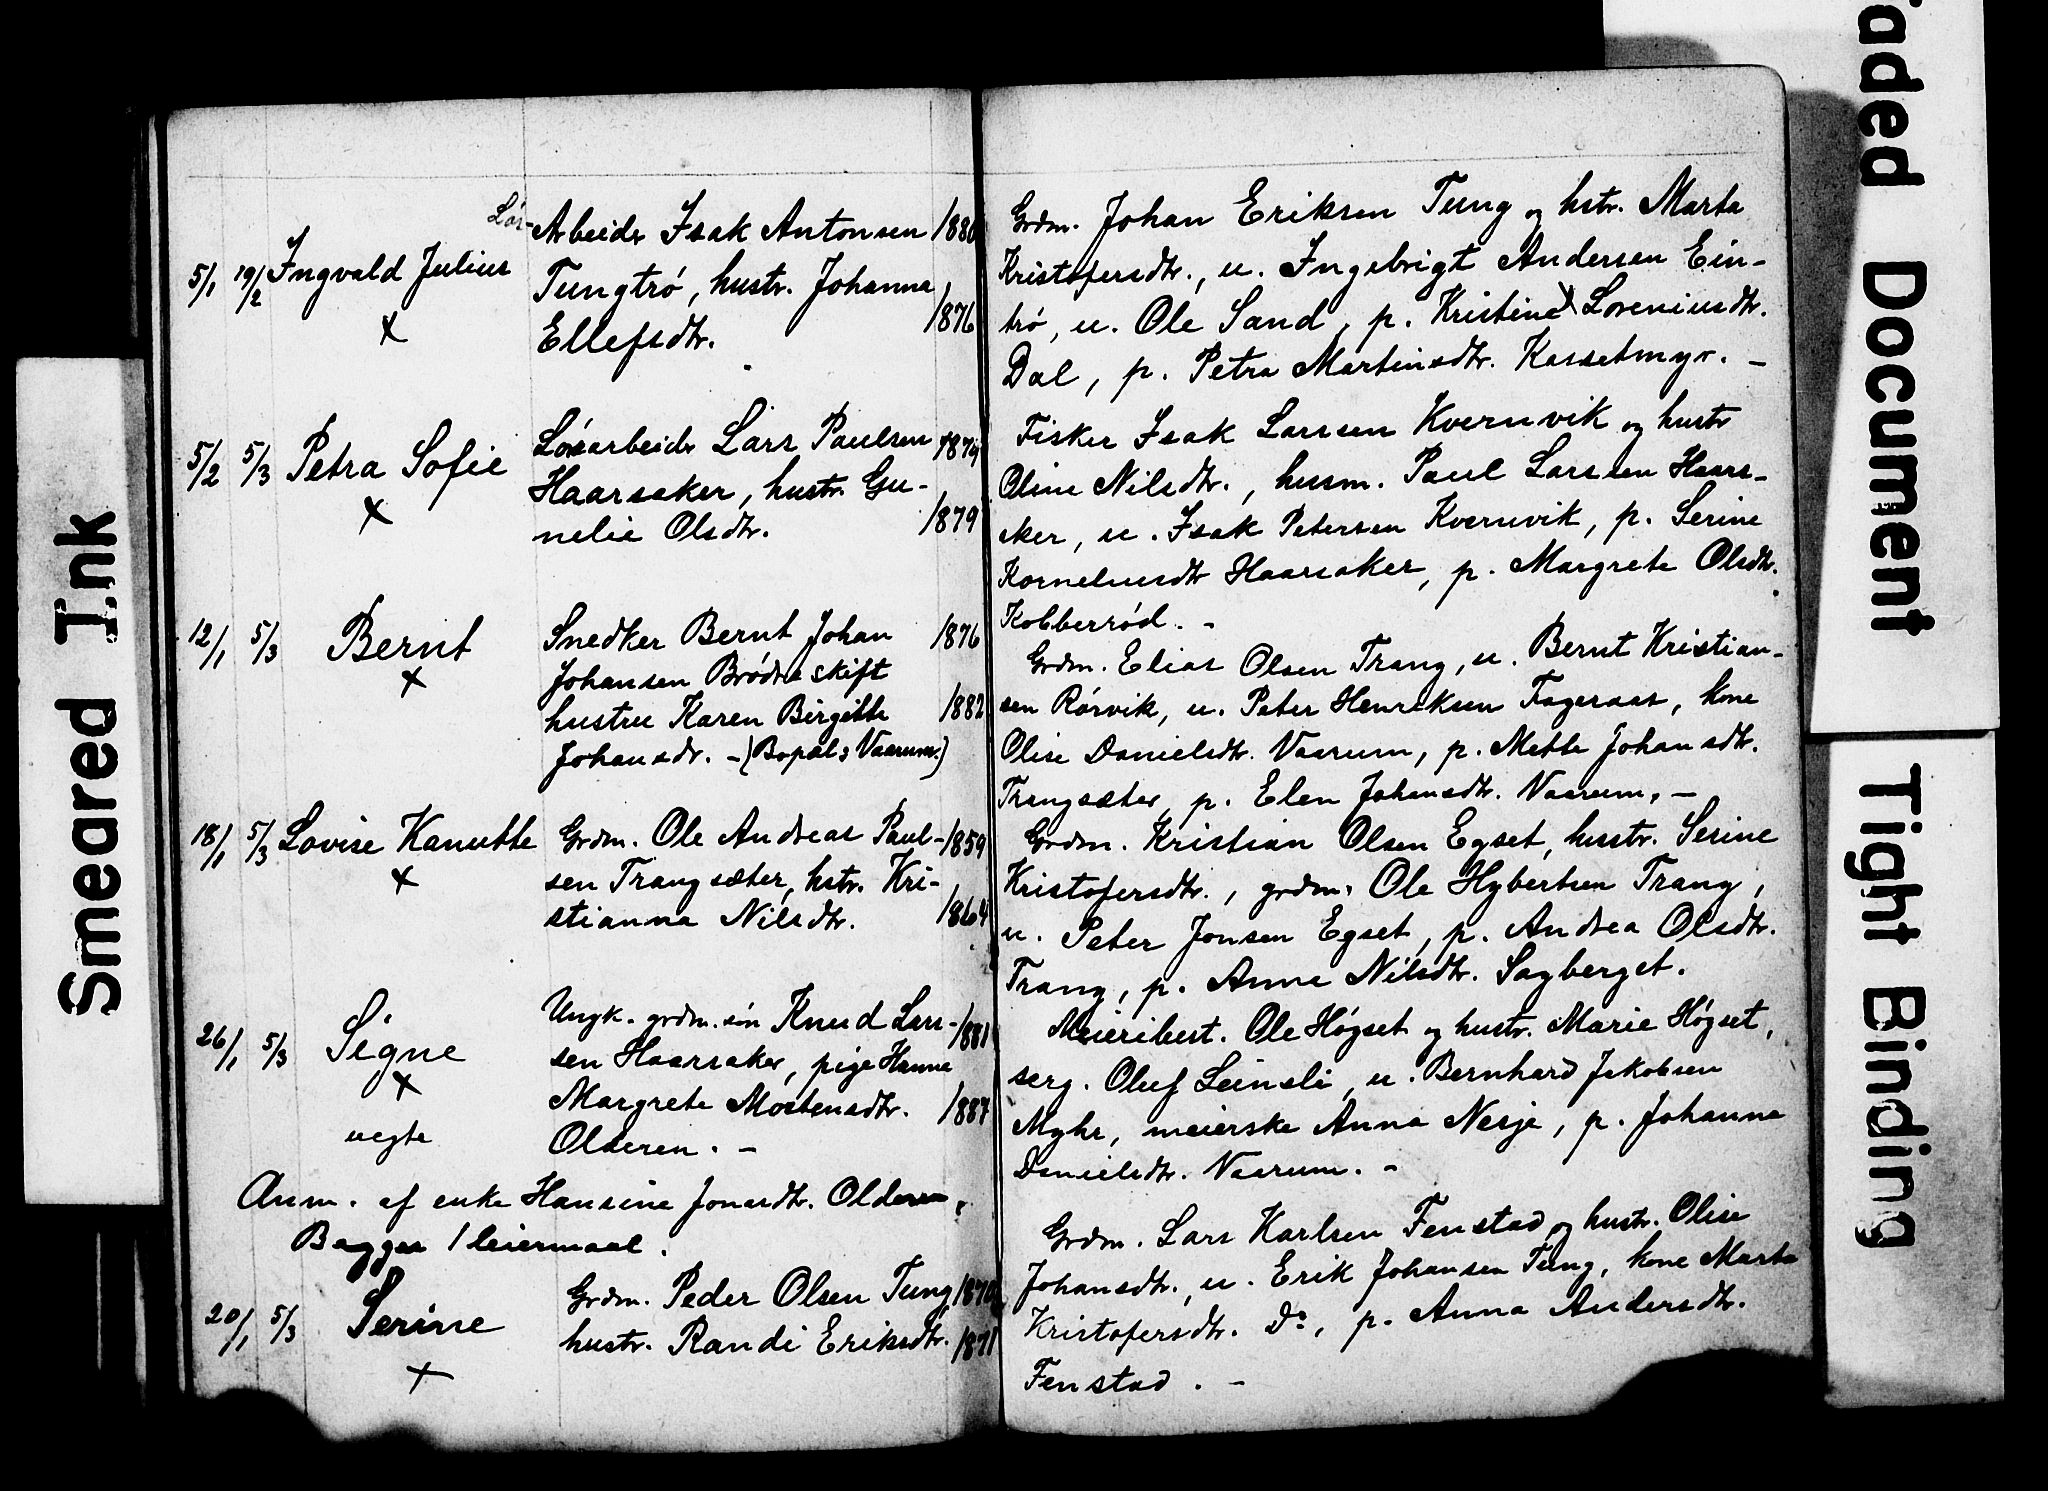 Løs-
Arbeider Isak Antonsen /1880
5/1 19/2 Ingvald Julius
Tungtrø, hustr. Johanna
/1876
x
Ellefsdtr.
5/2 5/3 Petra Sofie
Løsarbeider Lars Paulsen /1879
Haarsaker, hustr. Gu-
x
nelie Olsdtr. /1879
12/1 5/3 Bernt
Snedker Bernt Johan /1876
x
Johansen Brødreskift
hustru Karen Birgitte /1882
Johansdr. - (Bopæl: Vaarum.)
18/1 5/3 Lovise Kanutte
Grdm. Ole Andreas Paul- /1859
x
sen Trangsæter, hstr. Kri-
stianna Nilsdtr. /1864
26/1 5/3 Signe
Ungk. grdm. søn Knud Lars- /1881
sen Haarsaker, pige Hanna
x
Margrete Mortensdtr. /1887
uegte
Olderen. -
Anm. af enke Hansine Jonasdtr. Olderen.
Begges 1 leiermaal.
20/1 5/3 Serine
Grdm. Peder Olsen Tung /1870
hustr. Randi Eriksdtr. /1871
x
Grdm. Johan Eriksen Tung og hstr. Marta
Kristofersdtr., u. Ingebrigt Andersen Ein-
trø, u. Ole Sand, p. Kristine Loreniusdtr.
Dal, p. Petra Martinsdtr. Kassetmyr. -
Fisker Isak Larsen Kvernvik og hustr
Oline Nilsdtr., husm. Paul Larssen Haars-
aker, u. Isak Petersen Kvernvik, p. Serine
Korneliusdtr Haarsaker, p. Margrete Olsdtr.
Kobberrød. -
Grdm. Elias Olsen Trang, u. Bernt Kristian-
sen Rørvik, u. Peter Henriksen Fageraas, kone
Olise Danielsdtr. Vaarum, p. Mette Johansdtr.
Trangsæter, p. Elen Johansdtr. Vaarum. -
Grdm. Kristian Olsen Egset, husstr. Serine
Kristofersdtr., grdm. Ole Hybertsen Trang,
u. Peter Jonsen Egset, p. Andrea Olsdtr.
Trang, p. Anna Nilsdtr. Sagberget.
Meieribest. Ole Høgset og hustr. Marie Høgset,
serg. Oluf Leinsli, u. Bernhard Jakobsen
Myhr, meierske Anna Nesje, p. Johanna
Danielsdtr. Vaarum. -
Grdm. Lars Karlsen Fenstad og hustr. Olise
Johansdtr., u. Erik Johansen Tung, kone Marta
Kristofersdtr. Do, p. Anna Andersdtr.
Fenstad. -
Smeared Ink
Faded Document
Tight Binding